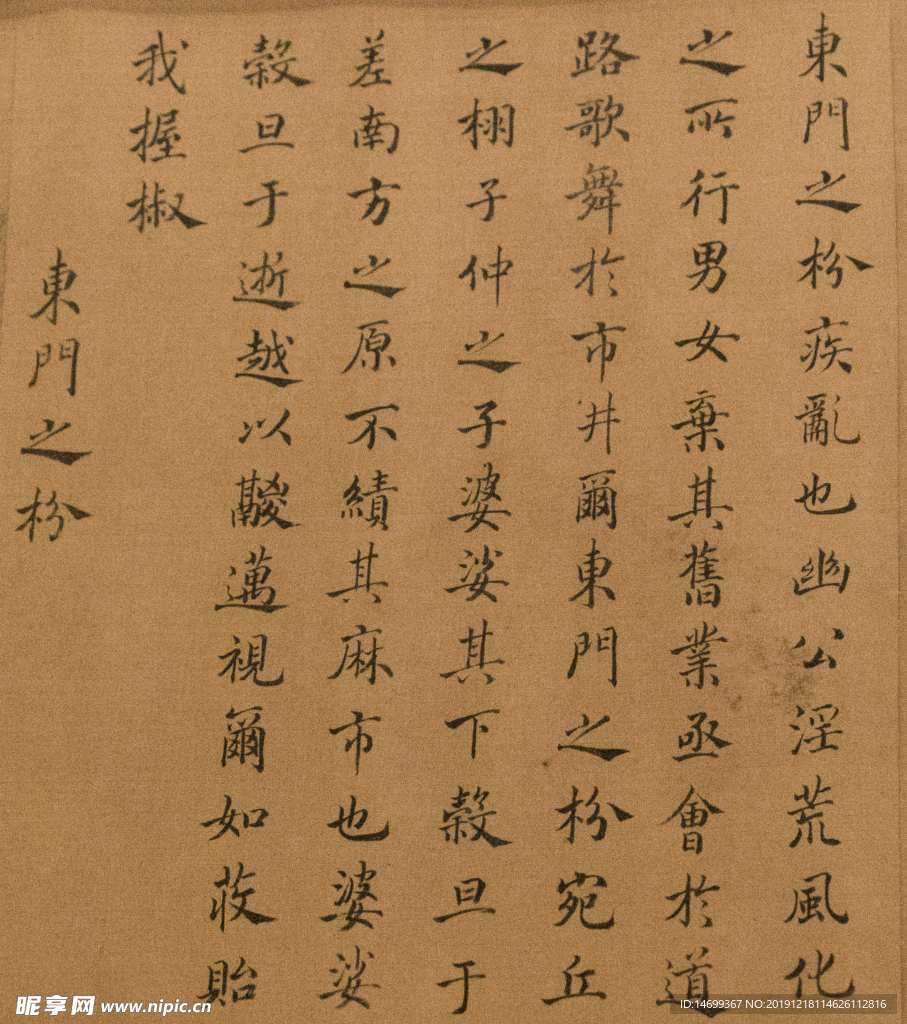 東門之枌疾亂也幽公淫荒風化
之所行男女棄其舊業亟會於道
路歌舞於市井爾東門之枌宛丘
之栩子仲之子婆娑其下榖旦于
差南方之原不績其麻市也婆娑
榖旦于逝越以鬷邁視爾如荍貽
我握椒
東門之枌
昵享网 www.nipic.cn
ID:14699367 NO:20191218114626112816